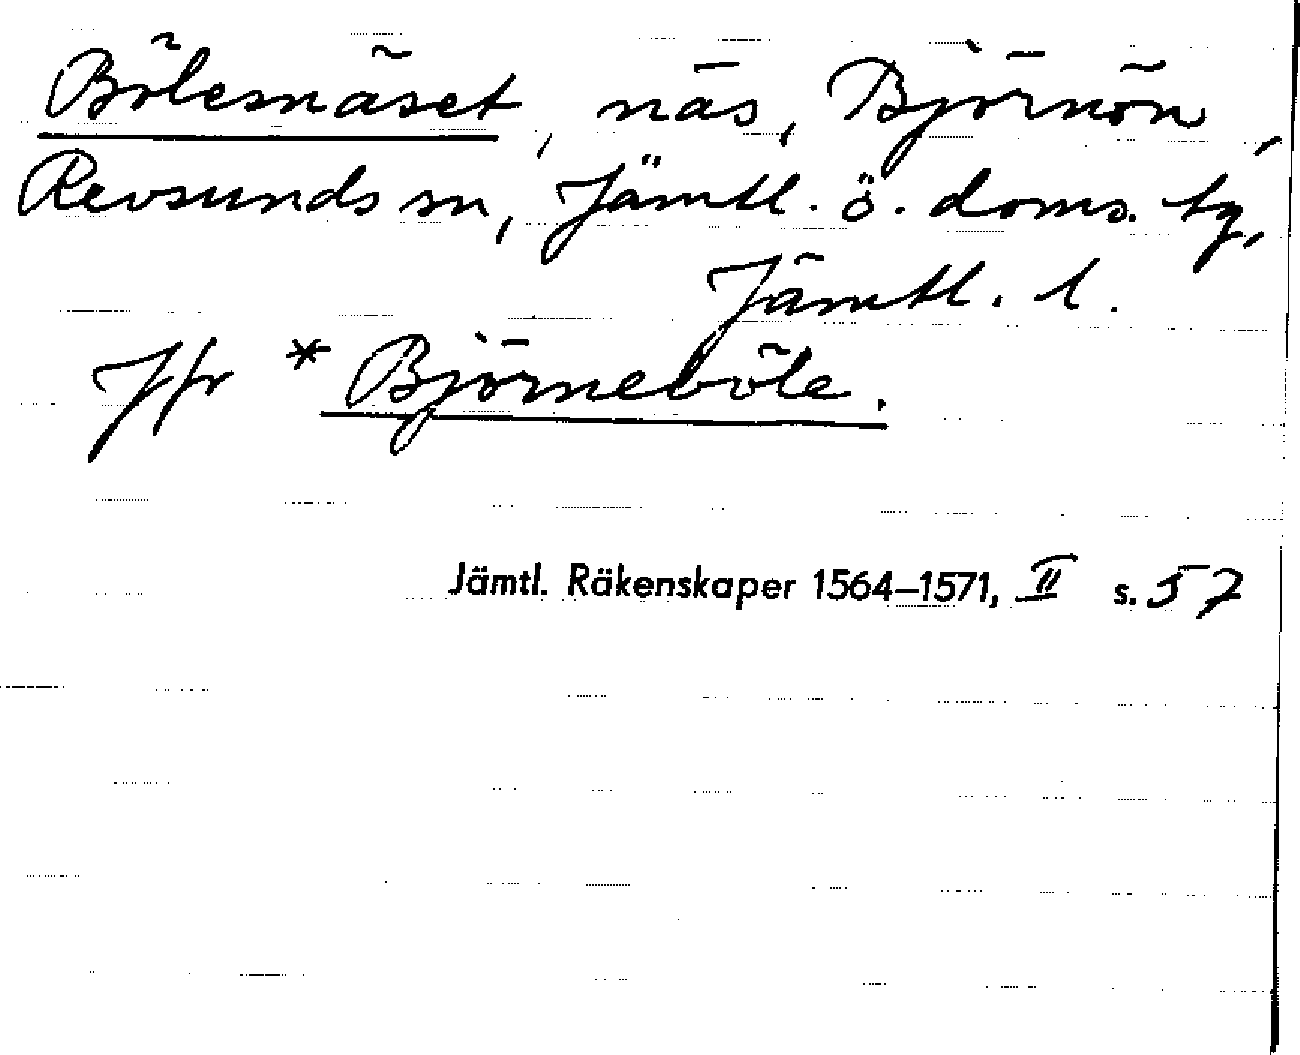 Bölesnäset, näs, Björnön,
Revsunds sn, Jämtl. ö. doms. tg,
Jämtl. l.
Jfr *Björneböle.
Jämtl. Räkenskaper 1564–1571, II s. 57